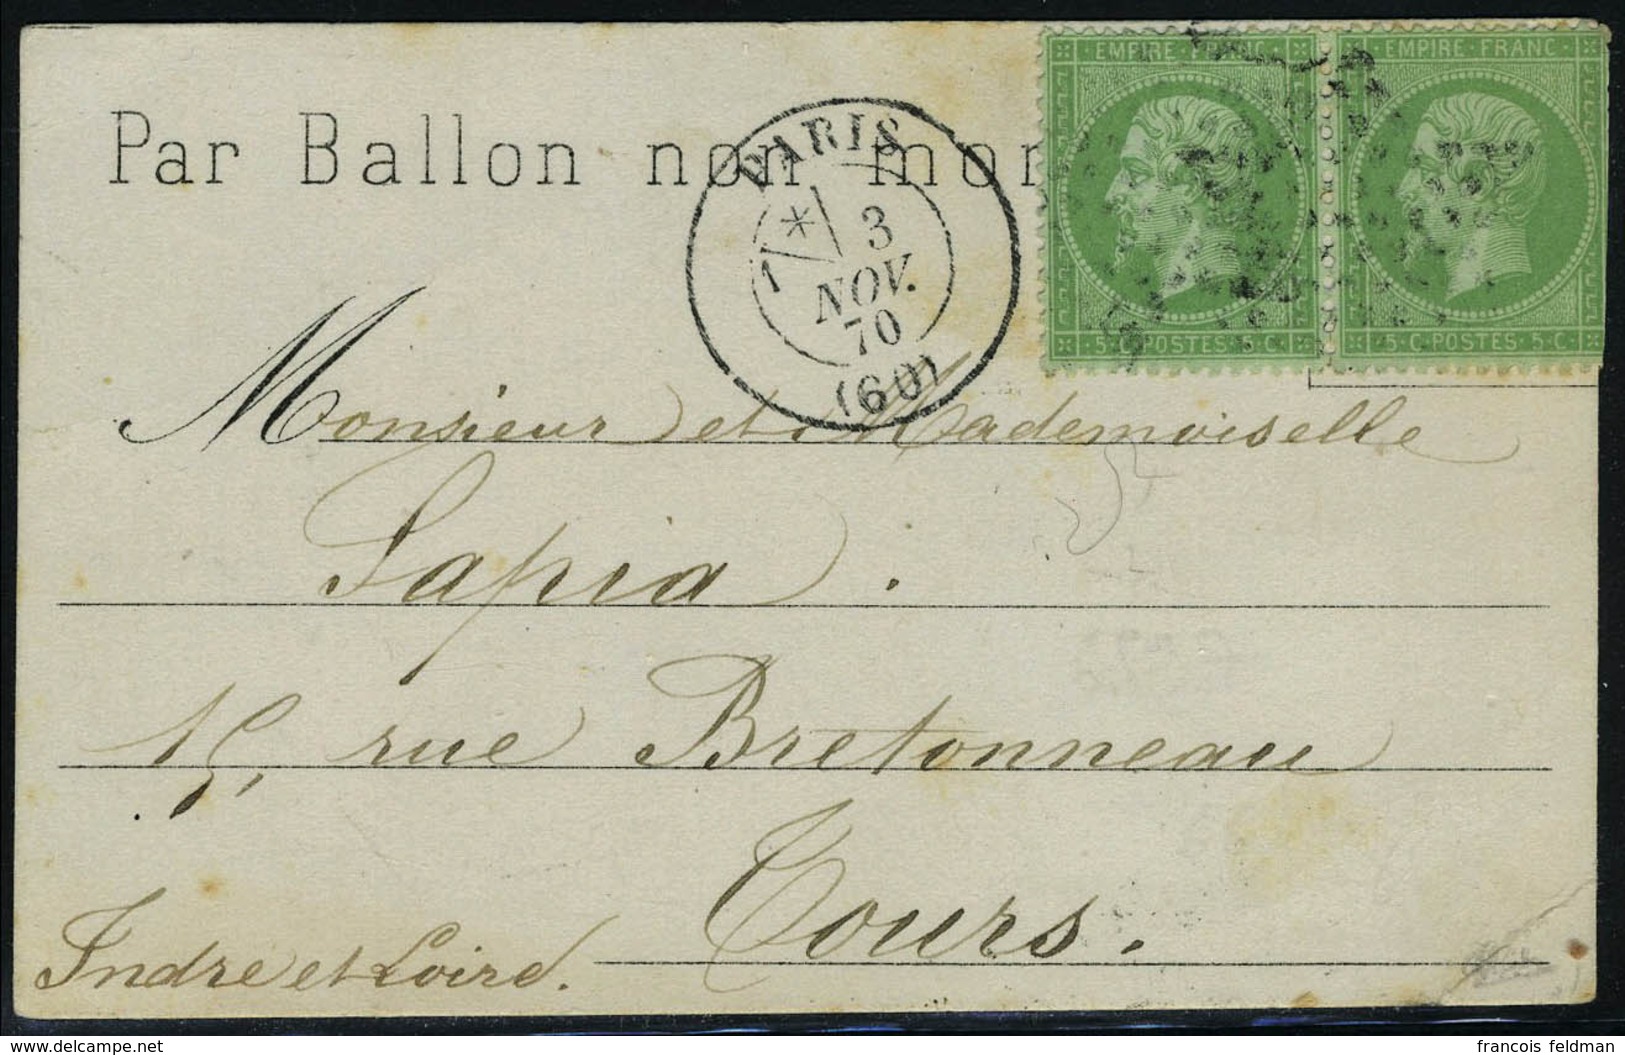 EMPIRE · FRANC EMPIRE · FRANC
5 · C · POSTES · 5 · C 5 · C · POSTES · 5 · C
Par Ballon non mon
PARIS
1 * 3
NOV.
70
(60)
Monsieur et Mademoiselle
Lapia.
15, rue Bretonneau
Tours.
Indre et Loire.
delcampe.net
francois feldman